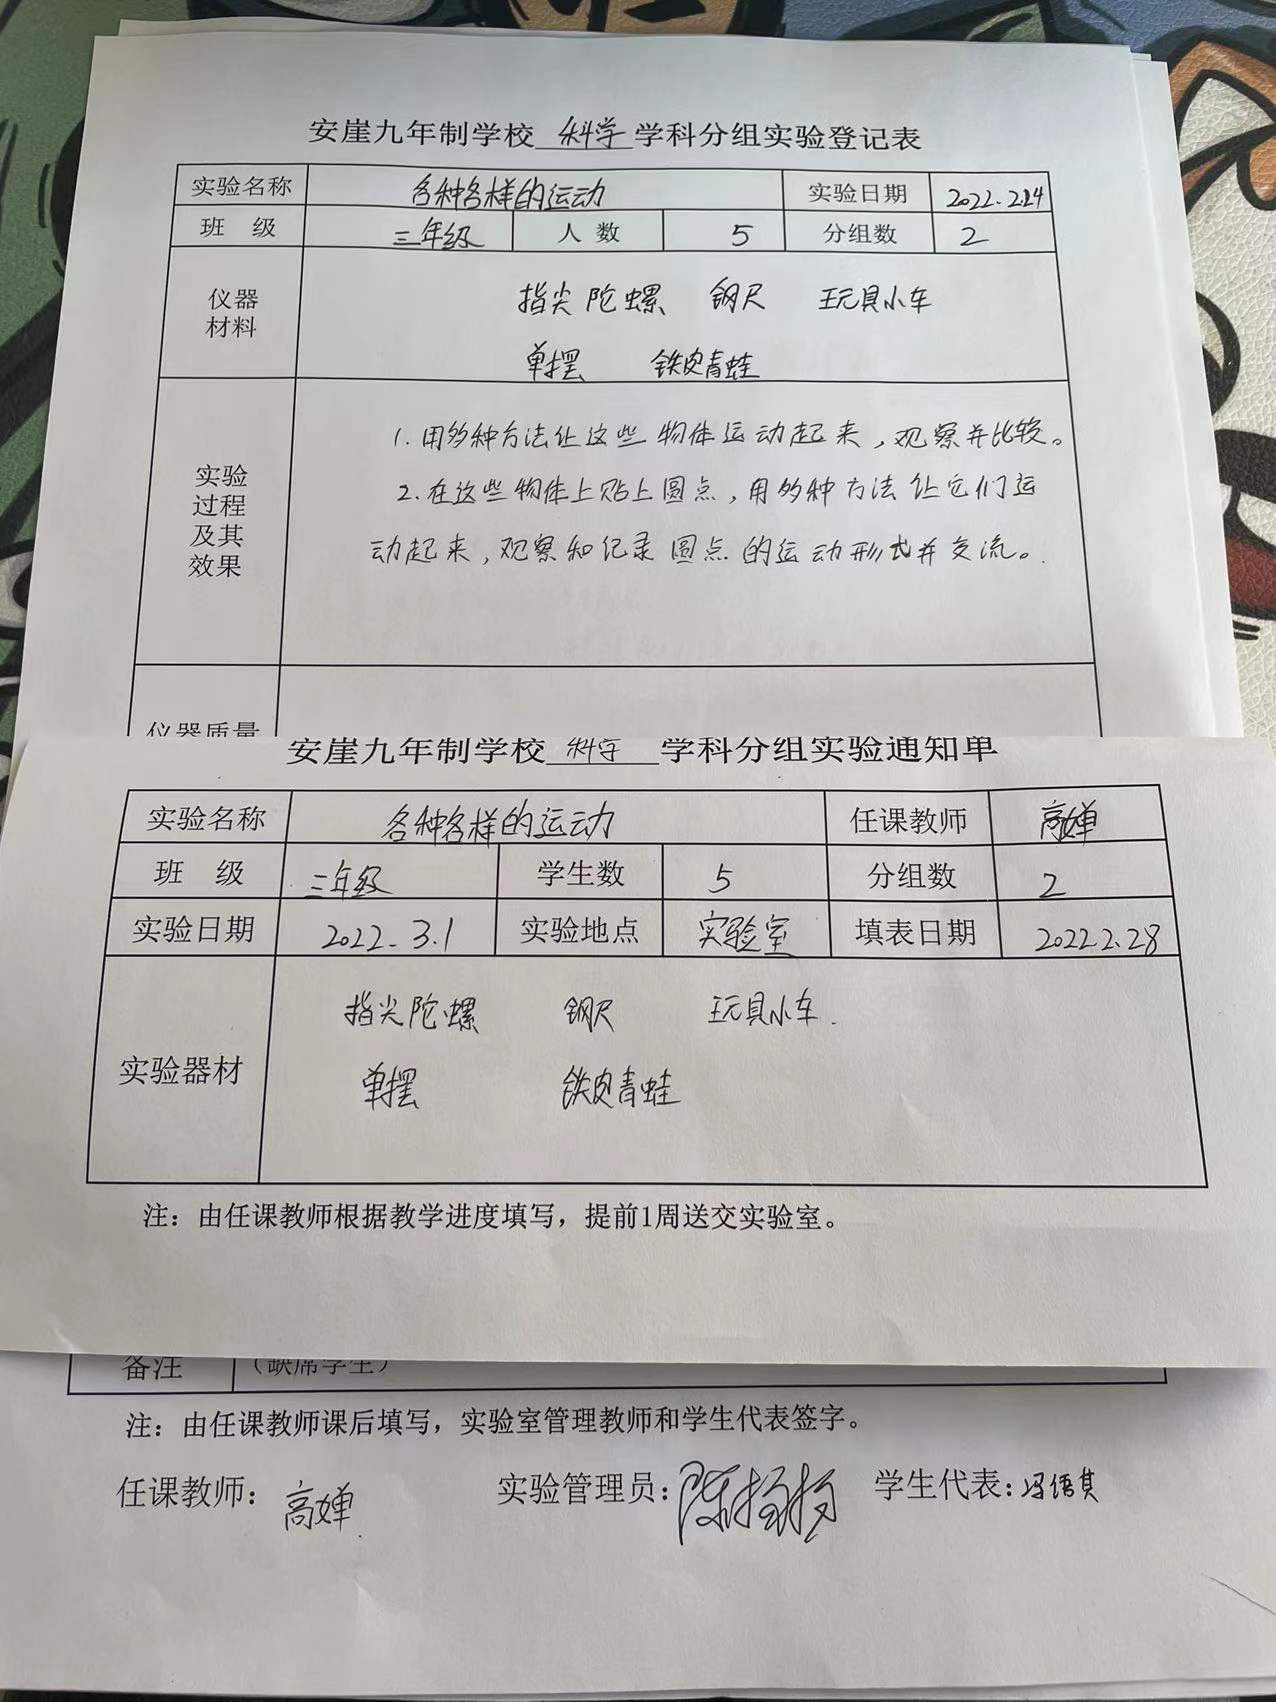 安崖九年制学校 科学 学科分组实验登记表
实验名称 各种各样的运动 实验日期 2022.2.14
班 级 三年级 人 数 5 分组数 2
仪器
材料
指尖陀螺 钢尺 玩具小车
单摆 铁皮青蛙
实验
过程
及其
效果
1.用多种方法让这些物体运动起来,观察并比较。
2.在这些物体上贴上圆点,用多种方法让它们运
动起来,观察和纪录圆点的运动形式并交流。
仪器质量
安崖九年制学校 科学 学科分组实验通知单
实验名称 各种各样的运动 任课教师 高婵
班 级 三年级 学生数 5 分组数 2
实验日期 2022.3.1 实验地点 实验室 填表日期 2022.2.28
实验器材
指尖陀螺 钢尺 玩具小车.
单摆 铁肉青蛙
注：由任课教师根据教学进度填写，提前1周送交实验室。
备注 （缺席学生）
注：由任课教师课后填写，实验室管理教师和学生代表签字。
任课教师：高婵 实验管理员：陈扬扬 学生代表：冯语其